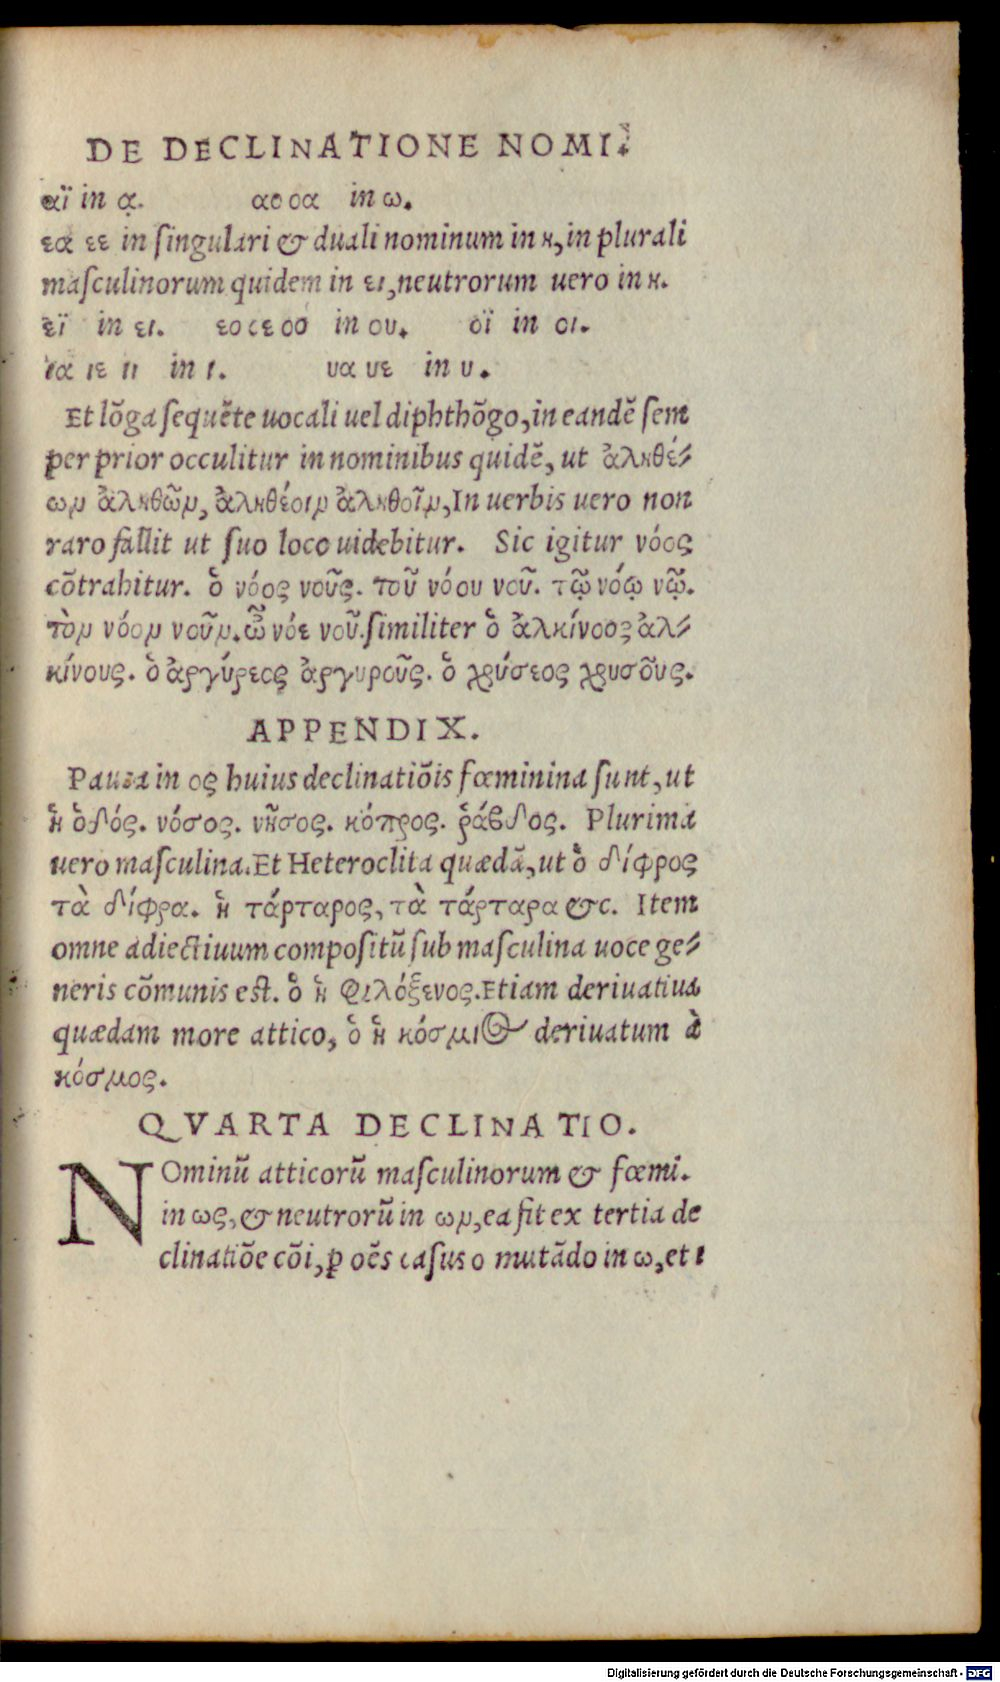 DE DECLINATIONE NOMI.
αϊ in ᾳ. αο οα in ω.
εα εε in ſingulari & duali nominum in η, in plurali
maſculinorum quidem in ει, neutrorum uero in η.
εϊ in ει. εο ϲε οο in ου. οϊ in οι.
ια ιε ιι in ι. υα υε in υ.
Et lõga ſequẽte uocali uel diphthõgo, in eandẽ ſem
per prior occulitur in nominibus quidẽ, ut ἀληθέ⸗
ων ἀληθῶν, ἀληθέοιν ἀληθοῖν, In uerbis uero non
raro fallit ut ſuo loco uidebitur. Sic igitur νόος
cõtrahitur. ὁ νόος νοῦς. τοῦ νόου νοῦ. τῷ νόῳ νῷ.
τὸν νόον νοῦν. ὦ νόε νοῦ. ſimiliter ὁ ἀλκίνοος ἀλ⸗
κίνους. ὁ ἀργύρεος ἀργυροῦς. ὁ χρύσεος χρυσοῦς.
APPENDIX.
Pauca in ος huius declinatiõis fœminina ſunt, ut
ἡ ὁδός. νόσος. νῆσος. κόπρος. ῥάβδος. Plurima
uero maſculina. Et Heteroclita quædã, ut ὁ δίφρος
τὰ δίφρα. ἡ τάρταρος, τὰ τάρταρα &c. Item
omne adiectiuum compoſitũ ſub maſculina uoce ge⸗
neris cõmunis eſt. ὁ ἡ φιλόξενος. Etiam deriuatiua
quædam more attico, ὁ ἡ κόσμιος deriuatum à
κόσμος.
QVARTA DECLINATIO.
NOminũ atticorũ maſculinorum & fœmi.
in ως, & neutrorũ in ων, ea fit ex tertia de
clinatiõe cõi, ꝑ oẽs caſus o mutãdo in ω, et ι
Digitalisierung gefördert durch die Deutsche Forschungsgemeinschaft - DFG